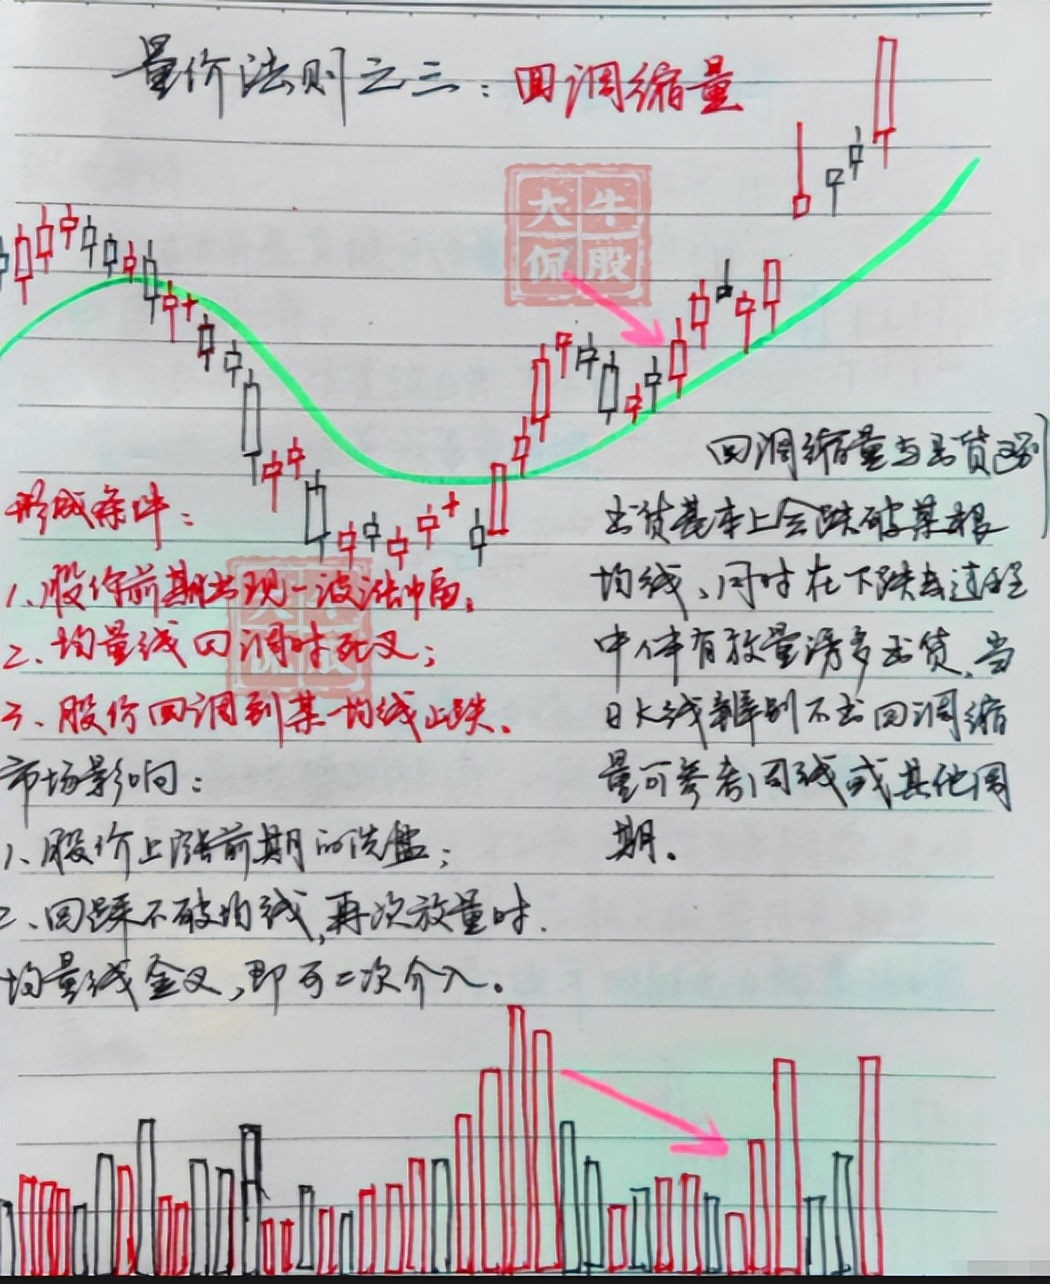 量价法则之三：回调缩量
大牛
侃股
形成条件：
1、股价前期出现一波涨幅。
2、均量线回调时死叉；
3、股价回调到某一均线止跌。
市场影响：
1、股价上涨前期的洗盘；
2、回踩不破均线，再次放量时.
均量线金叉，即可二次介入。
回调缩量与出货区别
出货基本上会跌破某根
均线、同时在下跌过程
中伴有放量诱多出货，当
日K线辨别不出回调缩
量可参考周线或其他周
期。